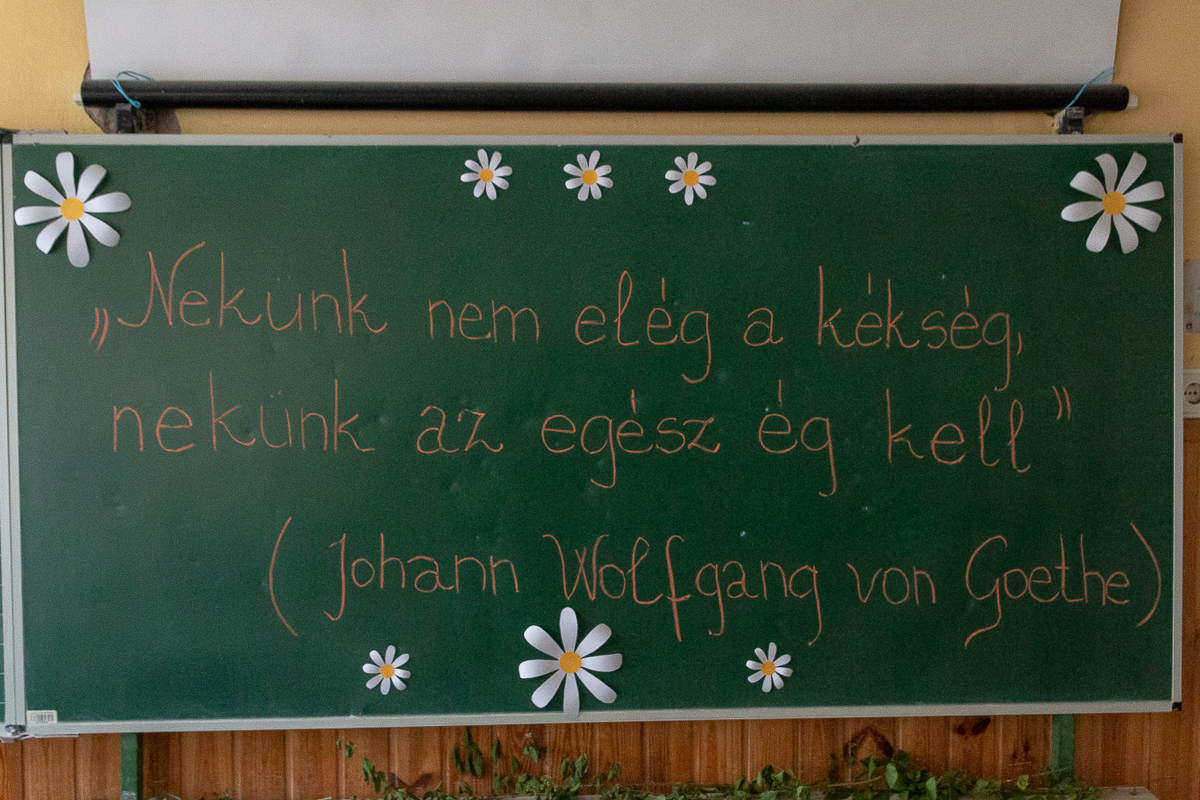 „Nekünk nem elég a kékség,
nekünk az egész ég kell”
(Johann Wolfgang von Goethe)